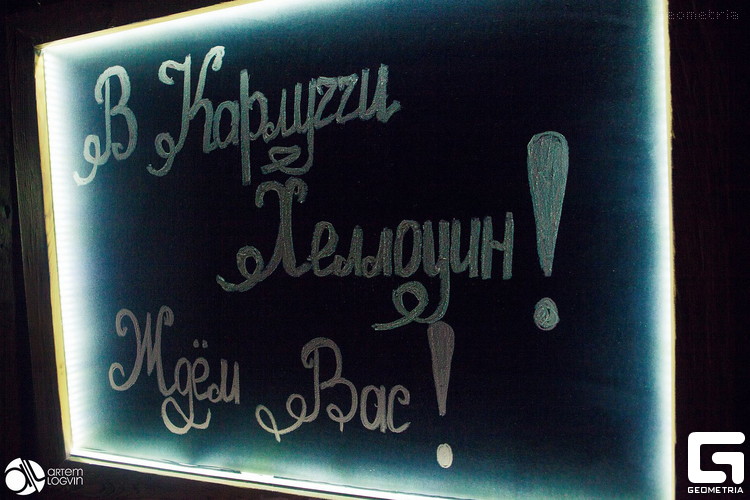 geometria
В Карлуччи
Хеллоуин!
Ждём Вас!
ARTEM
LOGVIN
GEOMETRIA